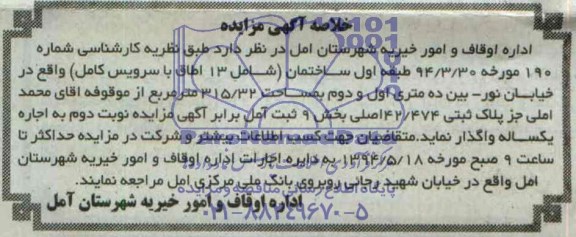 خلاصه آگهی مزایده
اداره اوقاف و امور خیریه شهرستان امل در نظر دارد طبق نظریه کارشناسی شماره
۱۹۰ مورخه ۹۴/۳/۳۰ طبقه اول ساختمان (شامل ۱۳ اطاق با سرویس کامل) واقع در
خیابان نور- بین ده متری اول و دوم بمساحت ۳۱۵/۳۲ مترمربع از موقوفه اقای محمد
املی جز پلاک ثبتی ۴۲/۴۷۴اصلی بخش ۹ ثبت آمل برابر آگهی مزایده نوبت دوم به اجاره
یکساله واگذار نماید.متقاضیان جهت کسب اطلاعات بیشتر و شرکت در مزایده حداکثر تا
ساعت ۹ صبح مورخه ۱۳۹۴/۵/۱۸ به دایره اجارات اداره اوقاف و امور خیریه شهرستان
امل واقع در خیابان شهید رجائی روبروی بانک ملی مرکزی امل مراجعه نمایند.
اداره اوقاف و امور خیریه شهرستان آمل
پایگاه اطلاع رسانی مناقصه و مزایده
۰۲۱-۸۸۳۴۹۶۷۰-۵